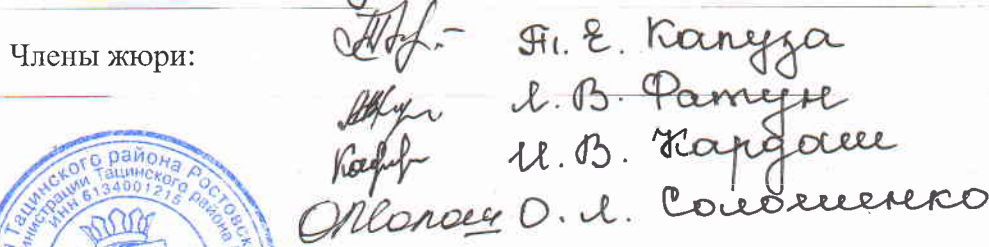 Члены жюри:
Т. Е. Капуза
Л. В. Фатун
И. В. Кардаш
О. Л. Соломенко
Тацинского района Ростовск
министрации Тацинского района
ИНН 6134001215